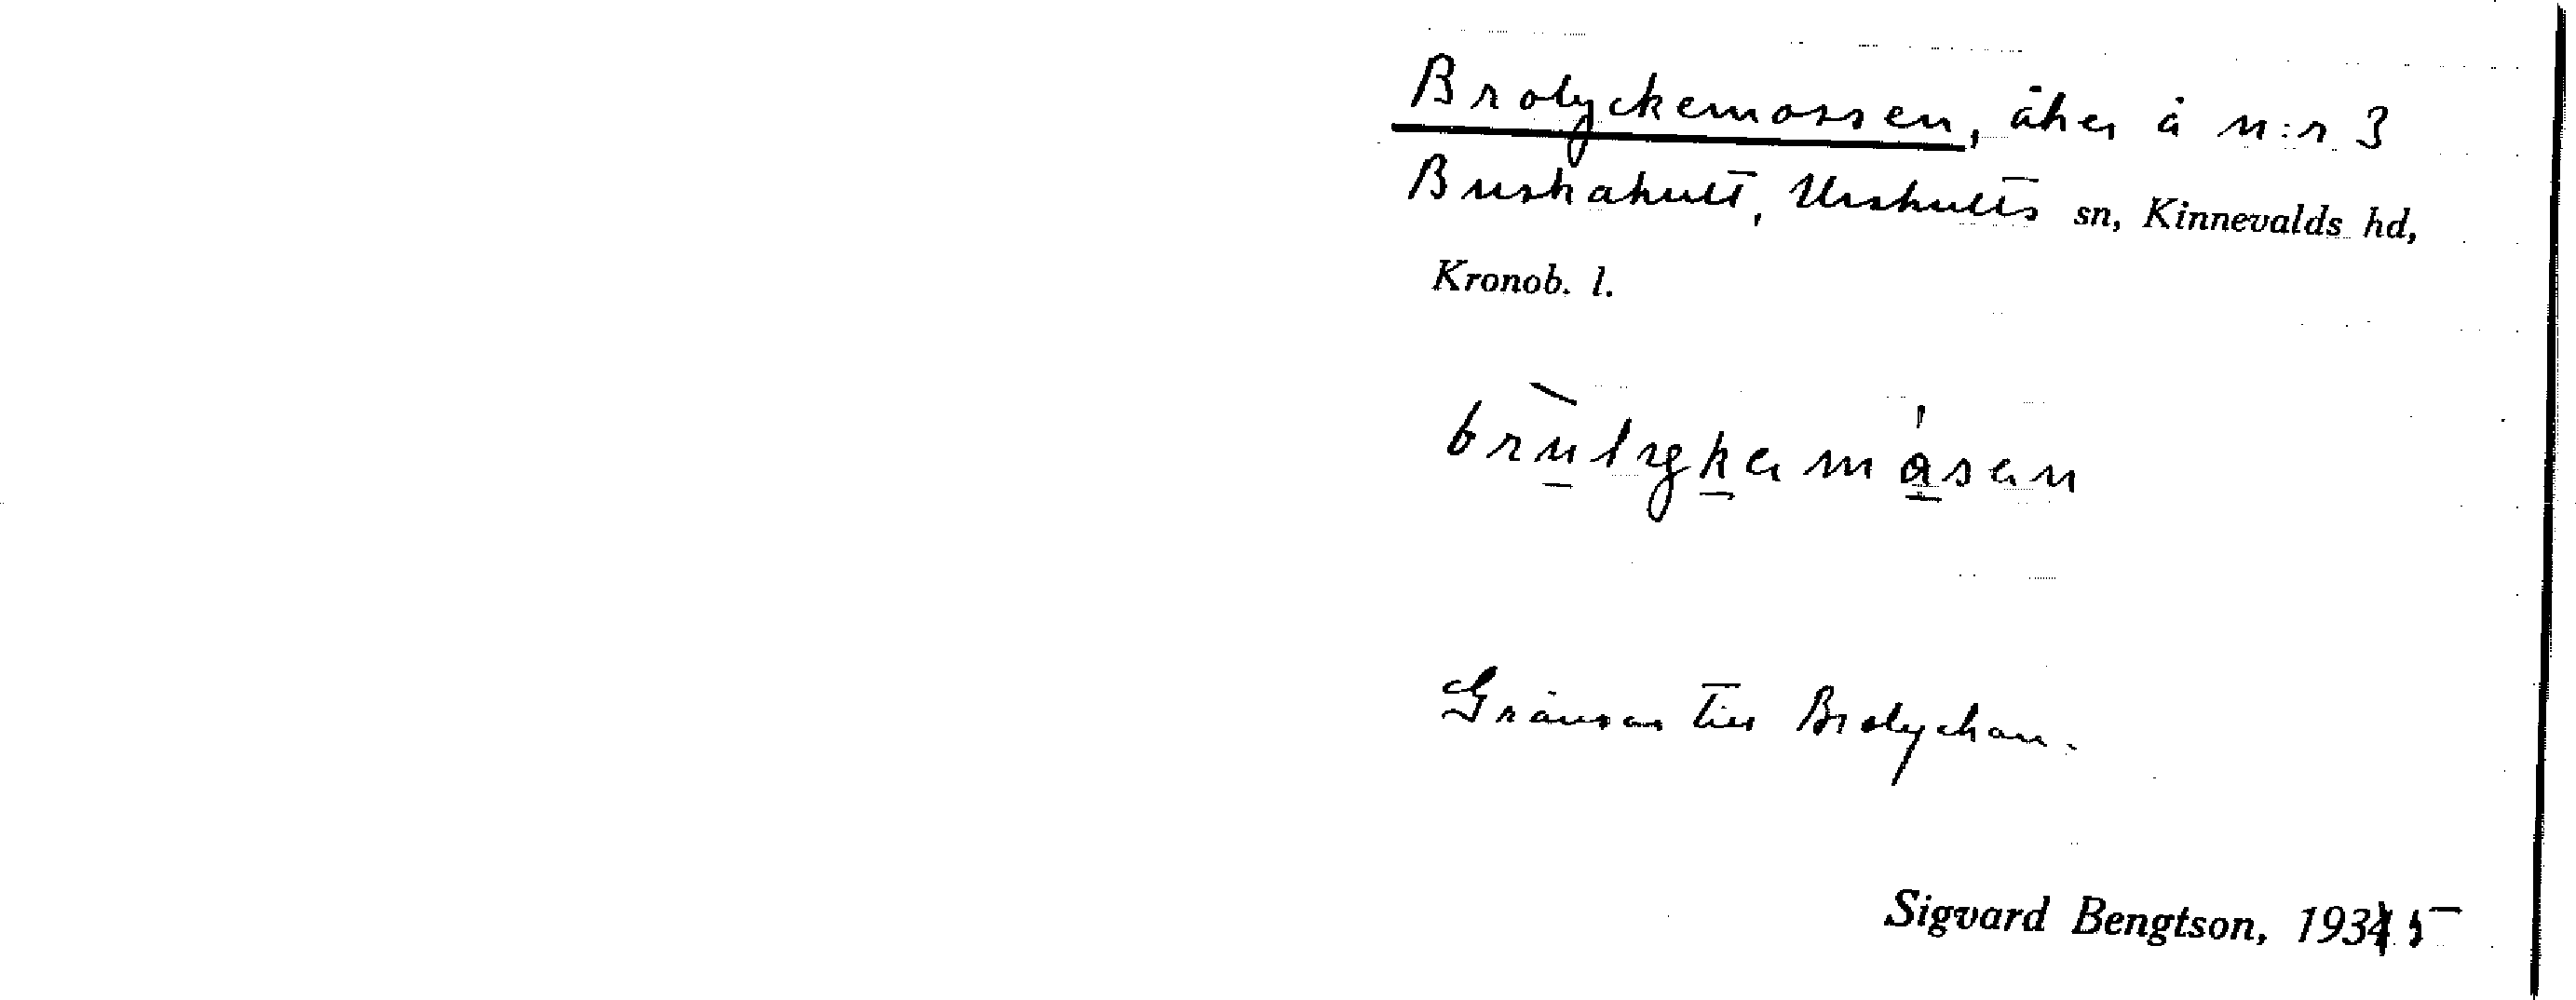 Brolyckemossen, åker å n:r 3
Buskahult, Urshults sn, Kinnevalds hd,
Kronob. l.
Gränsar till Brolyckan.
Sigvard Bengtson, 1935